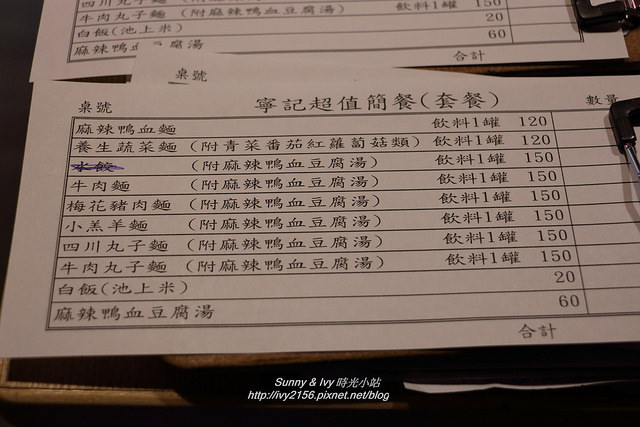 四川丸子麵 (附麻辣鴨血豆腐湯) 飲料1罐 150
牛肉丸子麵 (附麻辣鴨血豆腐湯) 飲料1罐 150
白飯(池上米) 20
麻辣鴨血 腐湯 60
合計
桌號
桌號 寧記超值簡餐(套餐) 數量
麻辣鴨血麵 飲料1罐 120
養生蔬菜麵 (附青菜番茄紅蘿蔔菇類) 飲料1罐 120
水餃 (附麻辣鴨血豆腐湯) 飲料1罐 150
牛肉麵 (附麻辣鴨血豆腐湯) 飲料1罐 150
梅花豬肉麵 (附麻辣鴨血豆腐湯) 飲料1罐 150
小羔羊麵 (附麻辣鴨血豆腐湯) 飲料1罐 150
四川丸子麵 (附麻辣鴨血豆腐湯) 飲料1罐 150
牛肉丸子麵 (附麻辣鴨血豆腐湯) 飲料1罐 150
白飯(池上米) 20
麻辣鴨血豆腐湯 60
合計
Sunny & Ivy 時光小站
http://ivy2156.pixnet.net/blog